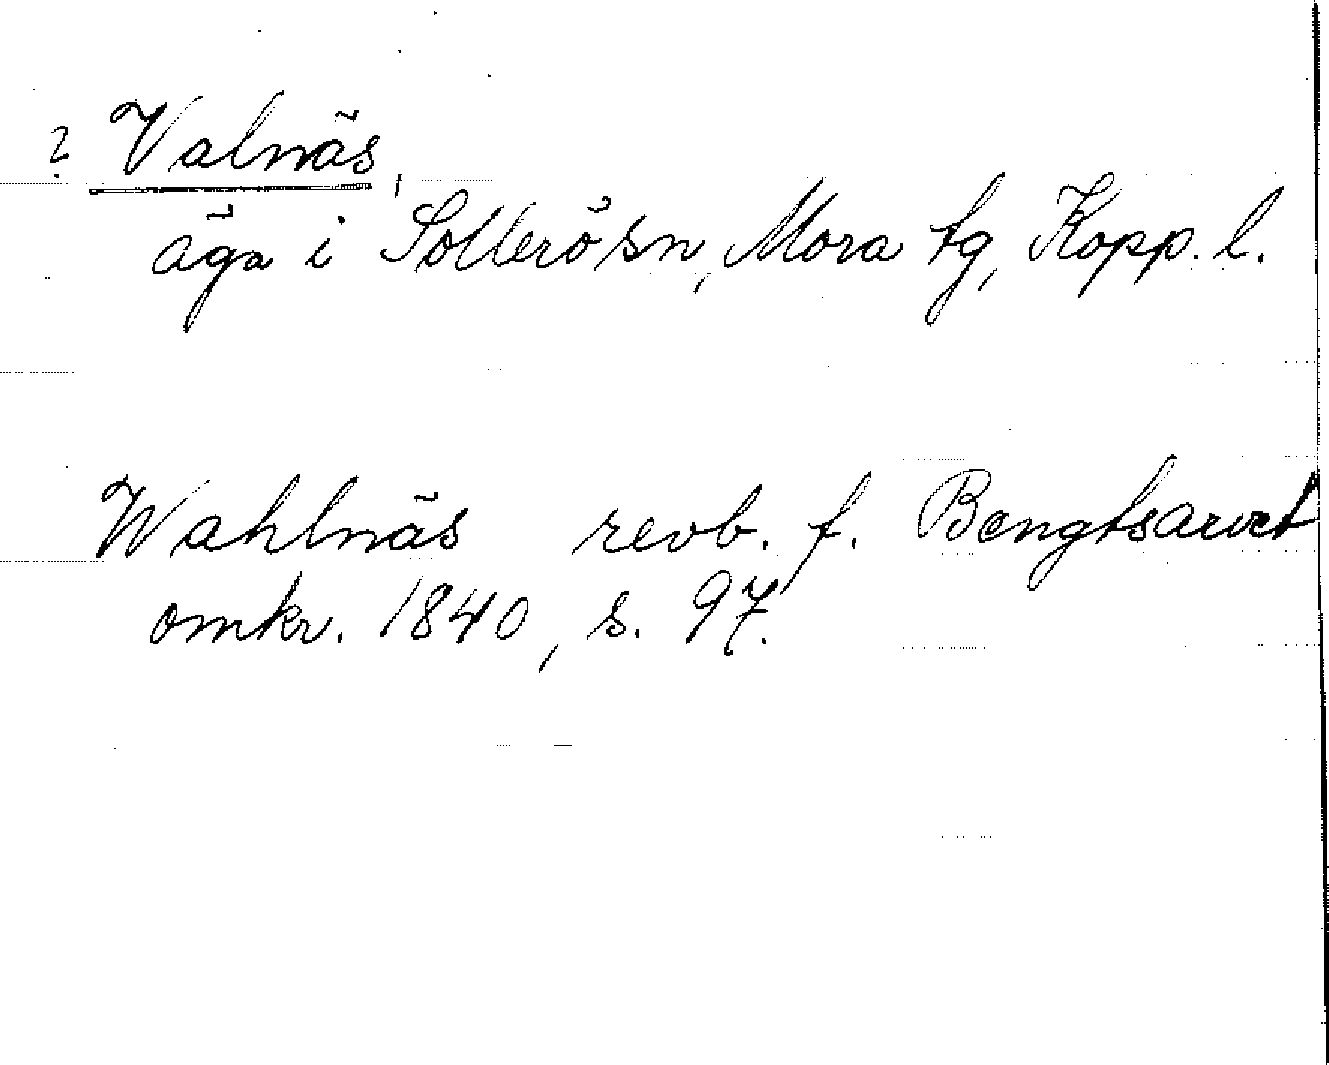 ? Valnäs,
äga i Sollerö sn, Mora tg, Kopp. l.
Wahlnäs revb. f. Bengtsarvet
omkr. 1840, s. 97.